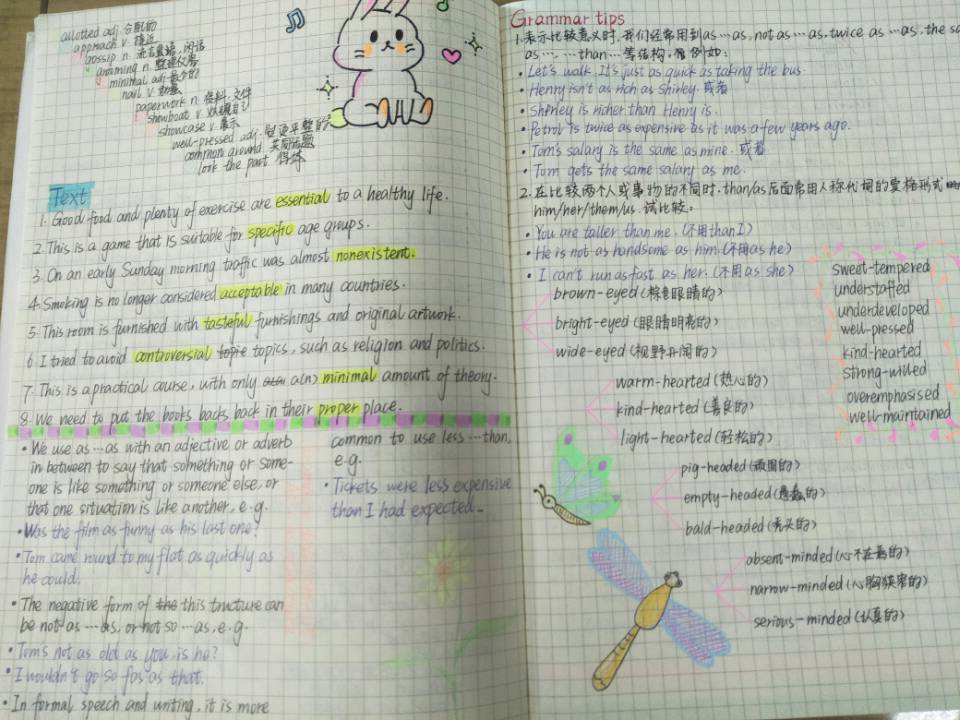 allotted adj. 分配的
approach v. 接近
gossip n. 流言蜚语，闲话
grooming n. 整理仪容
minimal adj. 最小的
nail v.
paperwork n. 资料，文件
showboat v. 炫耀自己
showcase v. 展示
well-pressed adj. 熨烫平整的
common ground 共同话题
look the part 得体
Text
1. Good food and plenty of exercise are essential to a healthy life.
2. This is a game that is suitable for specific age groups.
3. On an early Sunday morning traffic was almost nonexistent.
4. Smoking is no longer considered acceptable in many countries.
5. This room is furnished with tasteful furnishings and original artwork.
6. I tried to avoid controversial topie topics, such as religion and politics.
7. This is a practical course, with only a(n) minimal amount of theory.
8. We need to put the books backs back in their proper place.
• We use as…as with an adjective or adverb
in between to say that something or some-
one is like something or someone else, or
that one situation is like another, e.g.
• Was the film as funny as his last one?
• Tom came round to my flat as quickly as
he could.
• The negative form of the this tructure can
be not as …as, or not so …as, e.g.
• Tom's not as old as you, is he?
• I wouldn't go so fas as that.
• In formal speech and writing, it is more
common to use less …than,
e.g.
• Tickets were less expensive
than I had expected.
Grammar tips
1. 表示比较意义时，我们经常用到as…as, not as …as, twice as …as, the sa
as …, …than…等结构，例如:
• Let's walk. It's just as quick as taking the bus.
• Henry isn't as rich as Shirley. 或者
• Shirley is richer than Henry is.
• Petrol is twice as expensive as it was a few years ago.
• Tom's salary is the same as mine. 或者
• Tom gets the same salary as me.
2. 在比较两个人或事物的不同时，than/as后面常用人称代词的宾格形式me/
him/her/them/us. 试比较。
• You are taller than me. (不用than I)
• He is not as handsome as him. (不用as he)
• I can't run as fast as her. (不用as she)
brown-eyed (棕色眼睛的)
bright-eyed (眼睛明亮的)
wide-eyed (视野开阔的)
warm-hearted (热心的)
kind-hearted (善良的)
light-hearted (轻松的)
pig-headed (顽固的)
empty-headed (愚蠢的)
bald-headed (秃头的)
absent-minded (心不在焉的)
narrow-minded (心胸狭窄的)
serious-minded (认真的)
sweet-tempered
understaffed
underdeveloped
well-pressed
kind-hearted
strong-willed
overemphasised
well-maintained